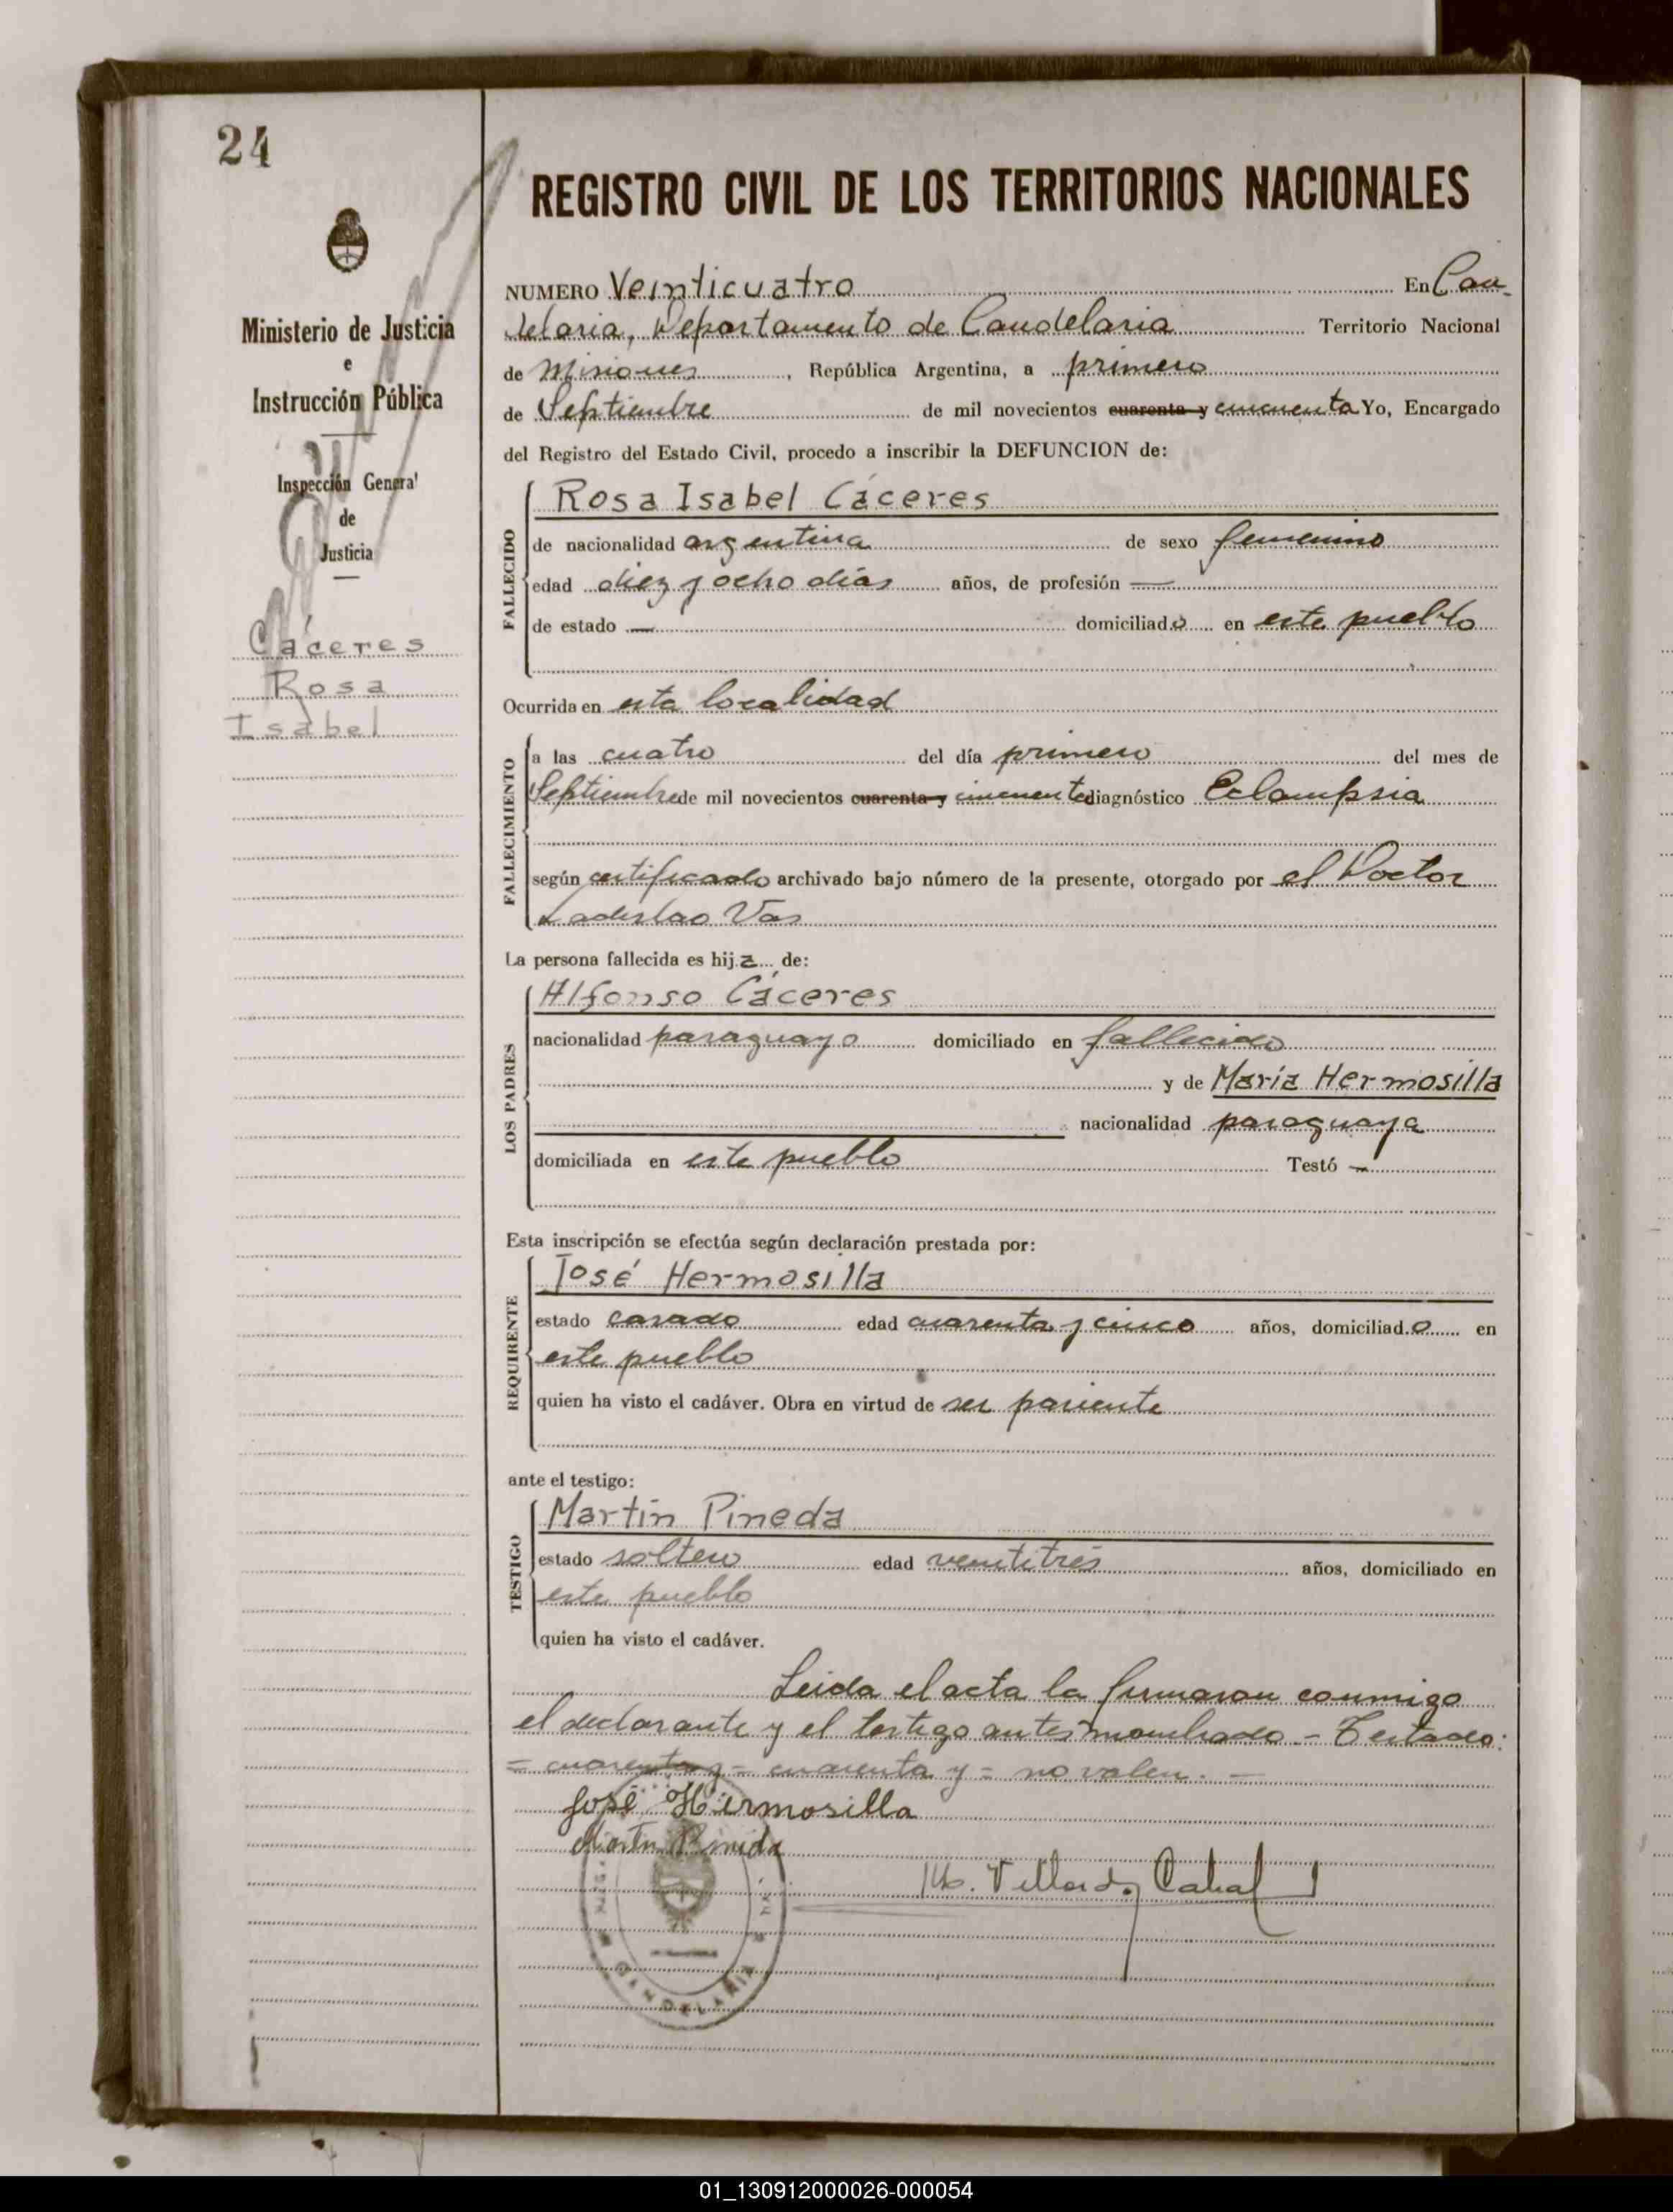 24
REGISTRO CIVIL DE LOS TERRITORIOS NACIONALES
Ministerio de Justicia
e
Instrucción Pública
Inspección General
de
Justicia
Cáceres
Rosa
Isabel
NUMERO Veinticuatro En Can-
delaria, Departamento de Candelaria Territorio Nacional
de Misiones, República Argentina, a primero
de Septiembre de mil novecientos cuarenta y cincuenta Yo, Encargado
del Registro del Estado Civil, procedo a inscribir la DEFUNCION de:
FALLECIDO
Rosa Isabel Cáceres
de nacionalidad argentina de sexo femenino
edad diez y ocho días años, de profesión —
de estado — domiciliado en este pueblo
Ocurrida en esta localidad
FALLECIMIENTO
a las cuatro del día primero del mes de
Septiembre de mil novecientos cuarenta y cincuenta diagnóstico Eclampsia
según certificado archivado bajo número de la presente, otorgado por el Doctor
Ladislao Vas
La persona fallecida es hija de:
LOS PADRES
Alfonso Cáceres
nacionalidad paraguayo domiciliado en fallecido
y de María Hermosilla
nacionalidad paraguaya
domiciliada en este pueblo Testó —
Esta inscripción se efectúa según declaración prestada por:
REQUIRENTE
José Hermosilla
estado casado edad cuarenta y cinco años, domiciliado en
este pueblo
quien ha visto el cadáver. Obra en virtud de ser pariente
ante el testigo:
TESTIGO
Martín Pineda
estado soltero edad veintitrés años, domiciliado en
este pueblo
quien ha visto el cadáver.
Leida el acta la firmaron conmigo
el declarante y el testigo antes nombrado - Testado:
= cuarenta y = cuarenta y = no valen. —
José Hermosilla
Martin Pineda
Cabral
CANDELARIA
01_130912000026-000054